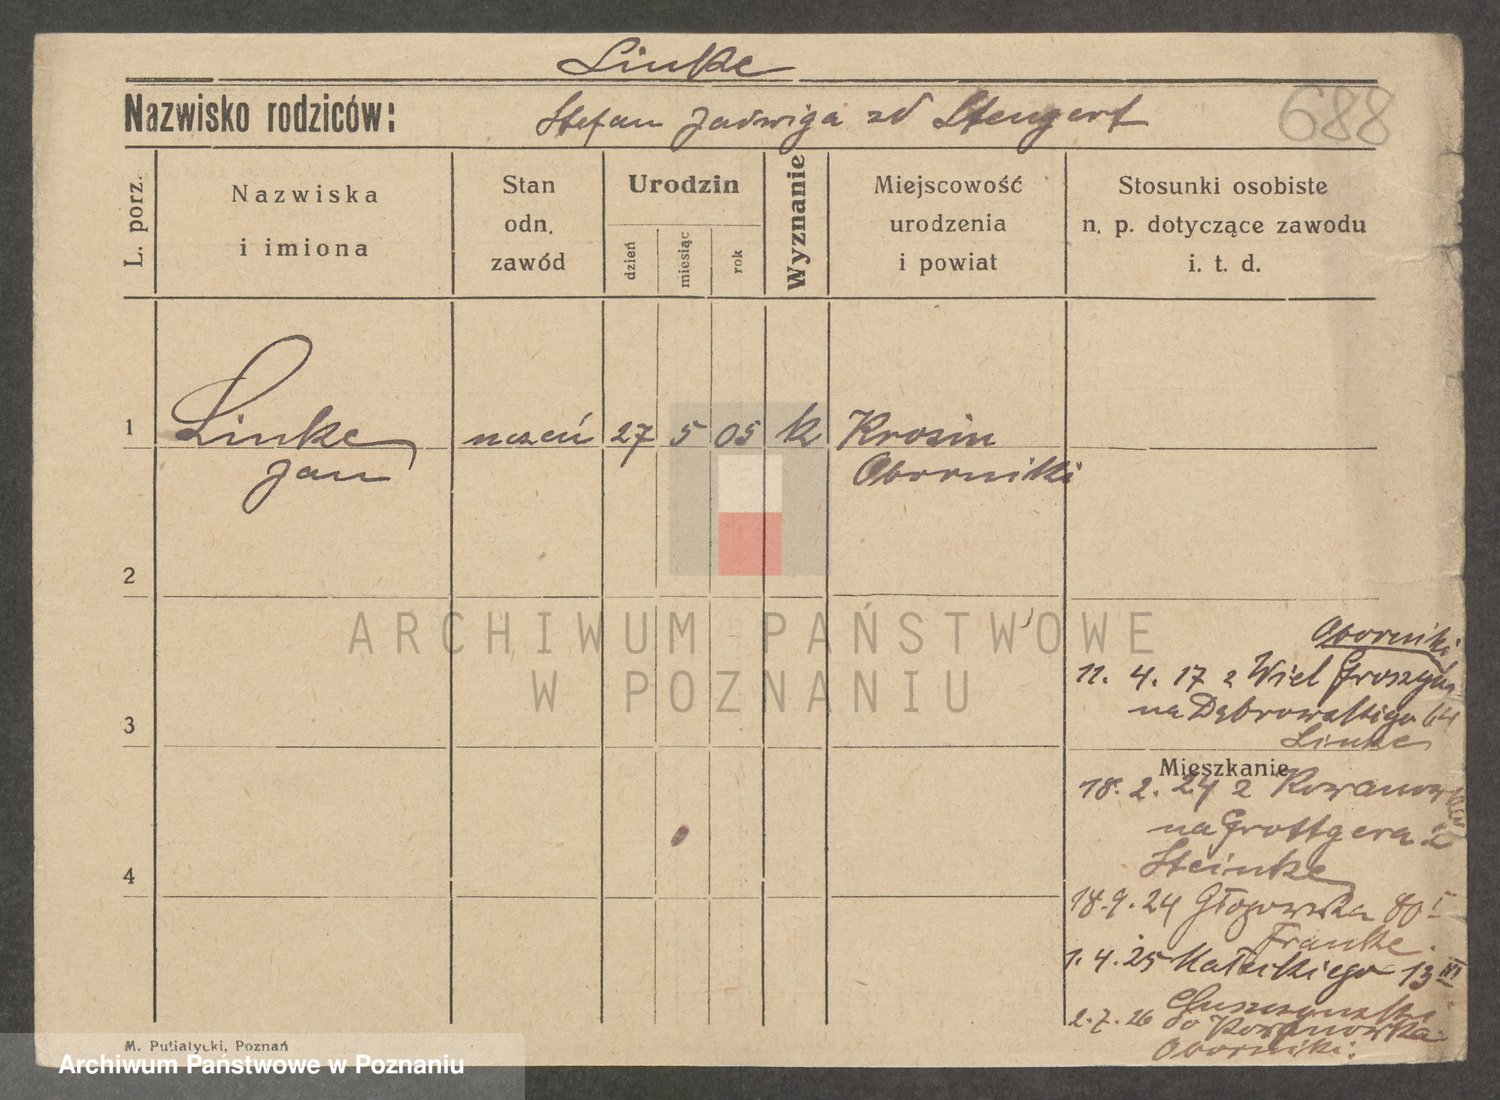 Linke
Nazwisko rodziców: Stefan Jadwiga zd Stengert
688
L. porz.
Nazwiska
i imiona
Stan
odn.
zawód
Urodzin
dzień
miesiąc
rok
Wyznanie
Miejscowość
urodzenia
i powiat
Stosunki osobiste
n. p. dotyczące zawodu
i. t. d.
1
Linke
Jan
uczeń
27
5
05
k
Krosin
Oborniki
2
3
4
Oborniki
11. 4. 17 z Wiel
na Dąbrowskiego 64
Linke
Mieszkanie
18. 2. 24 z
na Grottgera 2
Steinke
18. 9. 24 Głogowska 80 I
Franke
1. 4. 25 Małeckiego 13 III
2. 7. 26
do Rożnowska
Oborniki.
M. Putiatycki, Poznań
ARCHIWUM PAŃSTWOWE
W POZNANIU
Archiwum Państwowe w Poznaniu